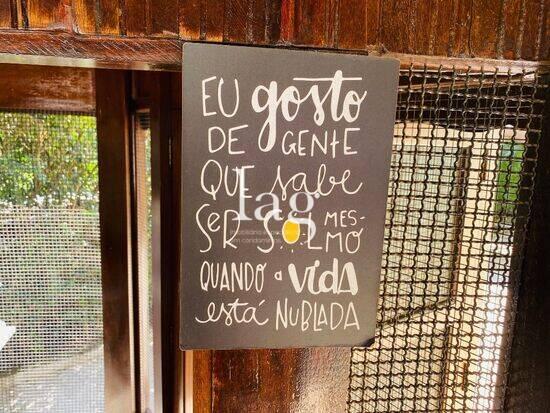 EU gosto
DE GENTE
QUE sabe
SER SOL MES-
MO
QUANDO a VIDA
está NUBLADA
lag